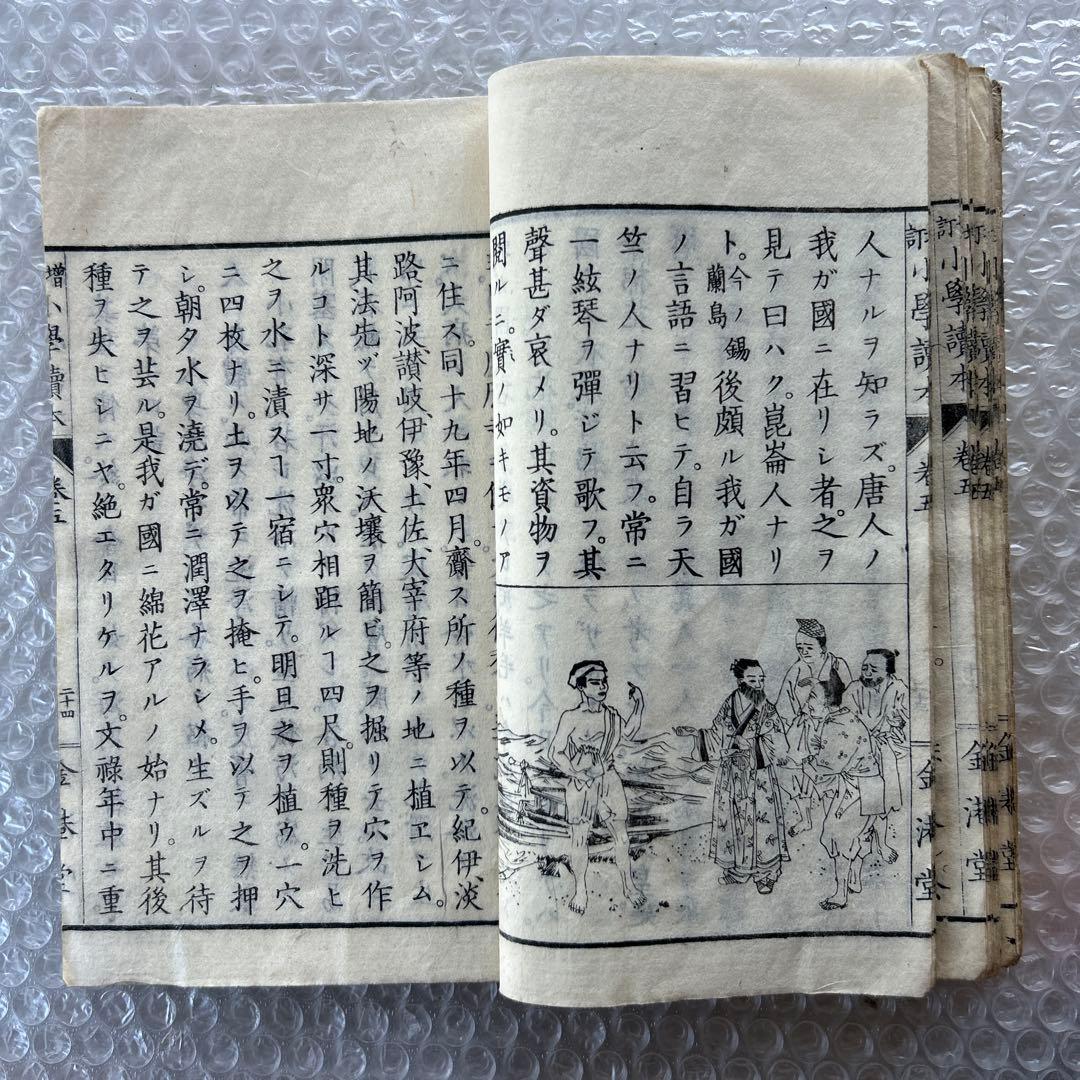 人ナルヲ知ラズ。唐人ノ
我ガ國ニ在リシ者。之ヲ
見テ曰ハク。崑崙人ナリ
ト。今ノ錫蘭島後頗ル我ガ國
ノ言語ニ習ヒテ。自ラ天
竺ノ人ナリト云フ。常ニ
一絃琴ヲ彈ジテ歌フ。其
聲甚ダ哀メリ。其資物ヲ
閲ルニ。實ノ如キモノア
ニ住ス。同十九年四月。齎ス所ノ種ヲ以テ。紀伊、淡
路、阿波、讃岐、伊豫、土佐、大宰府等ノ地ニ植ヱシム。
其法先ヅ陽地ノ沃壤ヲ簡ビ。之ヲ掘リテ穴ヲ作
ルコト深サ一寸。衆穴相距ルヿ四尺。則種ヲ洗ヒ
之ヲ水ニ漬スヿ一宿ニシテ。明旦之ヲ植ウ。一穴
ニ四枚ナリ。土ヲ以テ之ヲ掩ヒ。手ヲ以テ之ヲ押
シ。朝夕水ヲ澆デ。常ニ潤澤ナラシメ。生ズルヲ待
テ之ヲ芸ル。是我ガ國ニ綿花アルノ始ナリ。其後
種ヲ失ヒシニヤ。絶エタリケルヲ。文祿年中ニ重
小學讀本 卷五 金港堂
增 小學讀本 卷五 二十四 金港堂
訂 小學讀本 卷五 金港堂